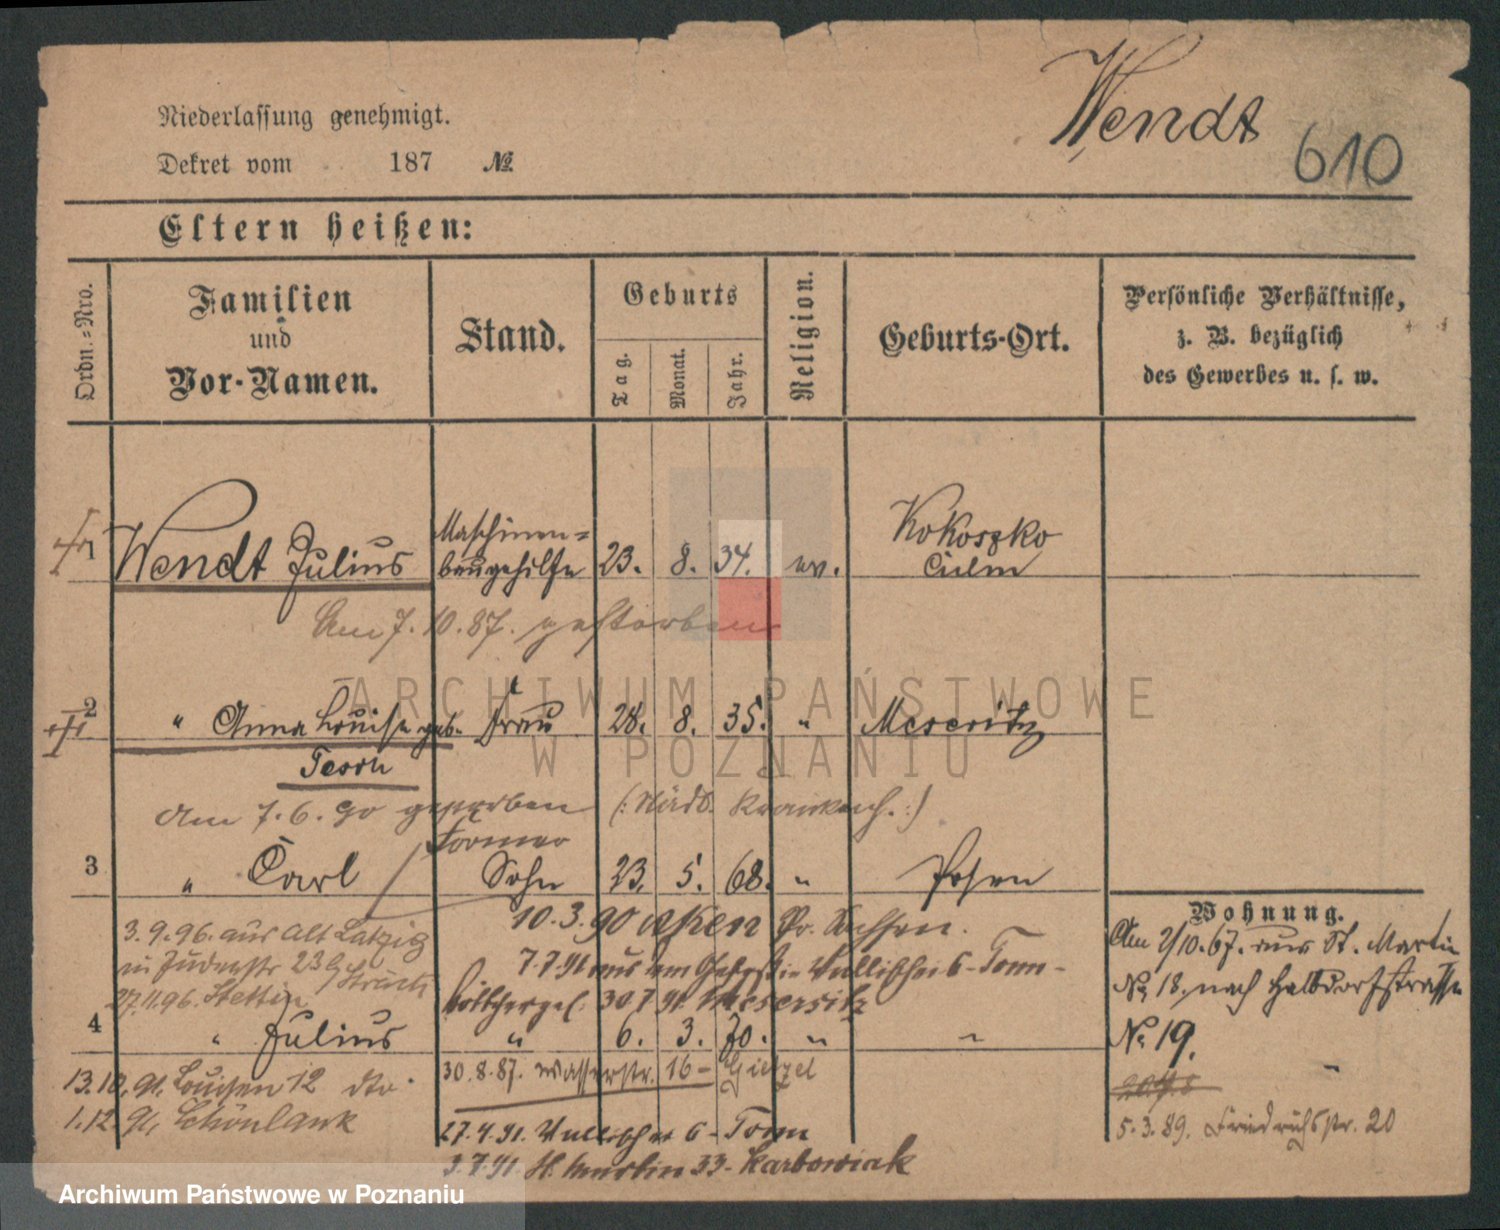 Wendt
610
Niederlassung genehmigt.
Dekret vom 187 №
Eltern heißen:
Ordn.-Nro.
Familien
und
Vor-Namen.
Stand.
Geburts
Tag.
Monat.
Jahr.
Religion.
Geburts-Ort.
Persönliche Verhältnisse,
z. B. bezüglich
des Gewerbes u. s. w.
1 Wendt Julius Maschinen=
baugehilfe 23. 8. 34. ev. Kokoszko
Culm
Am 7. 10. 87. gestorben
2 " Anna Louise geb. Frau 28. 8. 35. " Meseritz
Am 7. 6. 90 gestorben (: Städt. Krankenh. :)
Former
3 " Carl Sohn 23. 5. 68. " Posen
10. 3. 90 Aken Pr. Sachsen.
3. 9. 96. aus Alt Latzig
in Judenstr 23
27.11.96. Stettin
7.7.91 aus Wallischei 6 -
Böttcherges. 30.7.91. Meseritz
4 " Julius " 6. 3. 70. " "
13.10.91. Louisen 12 dto.
1.12.91. Schönlank
30.8.87. Wasserstr. 16 -
27.4.91. Wallischei 6 -
3.7.91. St. Martin 33 - Karbowiak
Wohnung.
Am 2/10. 67. aus St. Martin
No 18. nach Halbdorfstrasse
No 19.
5. 3. 89. Friedrichsstr. 20
ARCHIWUM PAŃSTWOWE
W POZNANIU
Archiwum Państwowe w Poznaniu